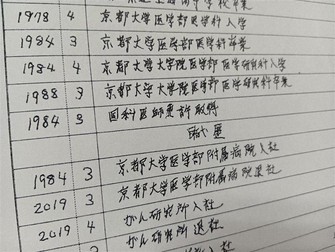 高中学校卒業
1978 4 京都大学医学部医学科入学
1984 3 京都大学医学部医学科卒業
1984 4 京都大学大学院医学部医学研究科入学
1988 3 京都大学大学院医学部医学研究科卒業
1984 3 国科医師免許取得
職歴
1984 3 京都大学医学部附属病院入社
2019 3 京都大学医学部附属病院退社
2019 4 がん研究所入社
がん研究所退社
入社